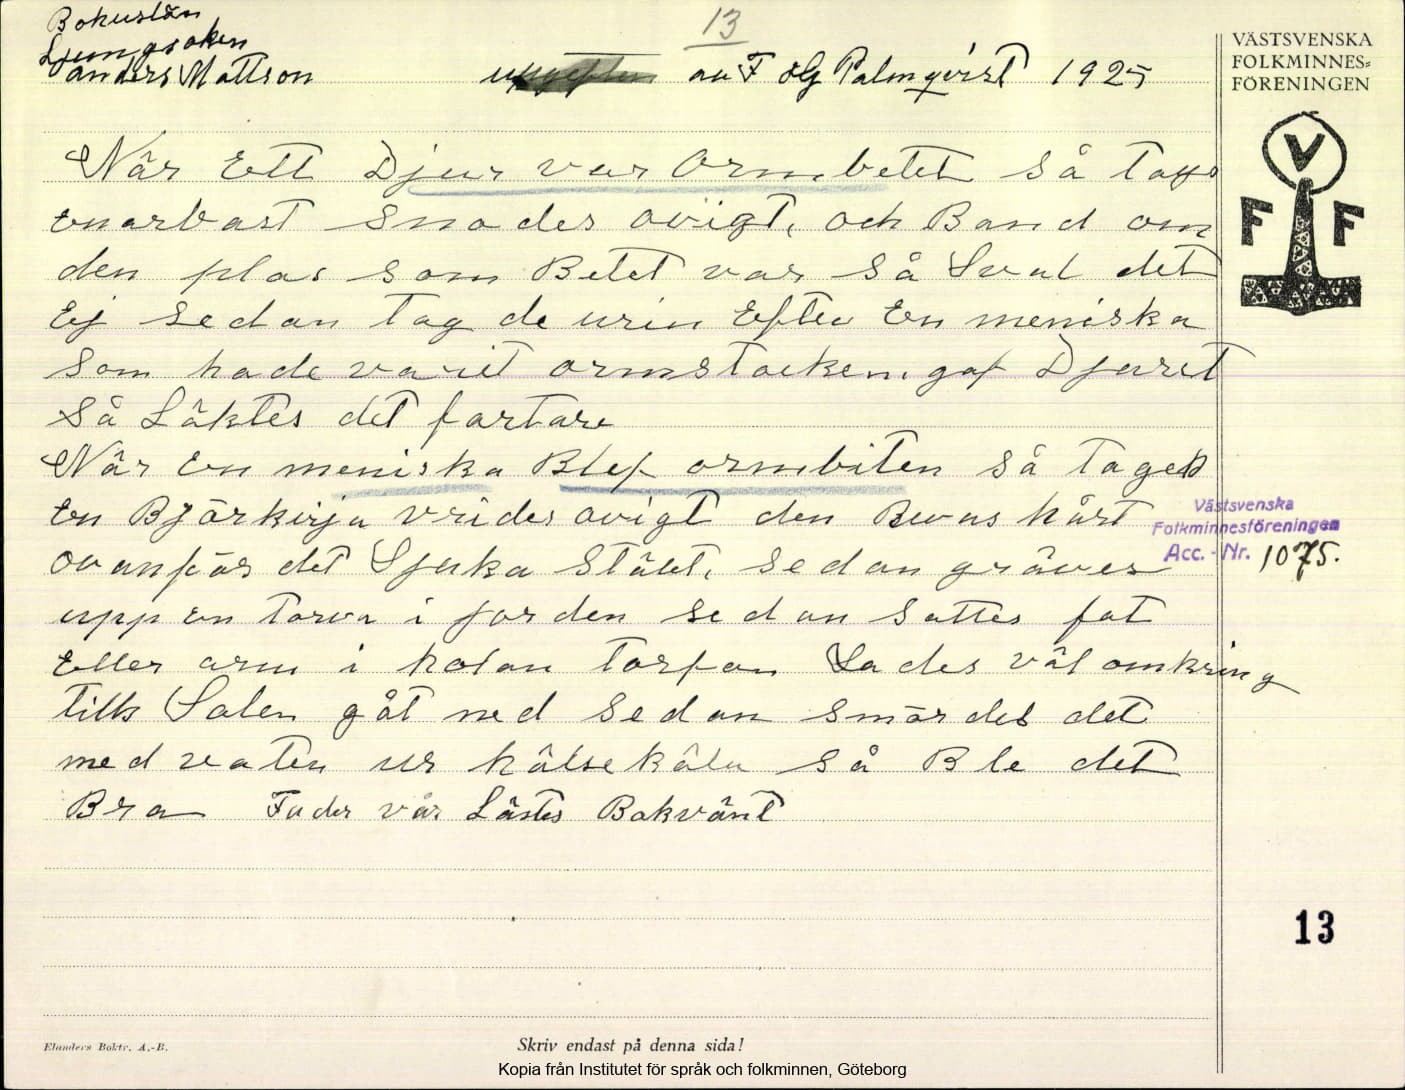 Bohuslän
Ljungsoken
Anders Mattson
av F &G Palmqvist 1925
13
VÄSTSVENSKA
FOLKMINNES=
FÖRENINGEN
V
F F
När Ett Djur var Ormbetet så togs
enarbast Snodes avigt, och Band om
den plas som Betet var så Sval det
Ej sedan tag de urin Efter En meniska
som hade varit ormstocken, gaf Djuret
så Läktes det fortare
När En meniska Blef ormbiten så toges
En Björkvija vrides avigt den Bevas hårt
ovanför det Sjuka Stälet, sedan gräves
upp en torva i jorden sedan sattes fot
Eller arm i holan torfvan Lades väl omkring
tills Solen gåt ned sedan smördes det
med vaten ur hälsekäla så Ble det
Bra Fader vår Lästes Bakvänt
Västsvenska
Folkminnesföreningen
Acc. - Nr. 1075.
13
Elanders Boktr. A.-B.
Skriv endast på denna sida!
Kopia från Institutet för språk och folkminnen, Göteborg